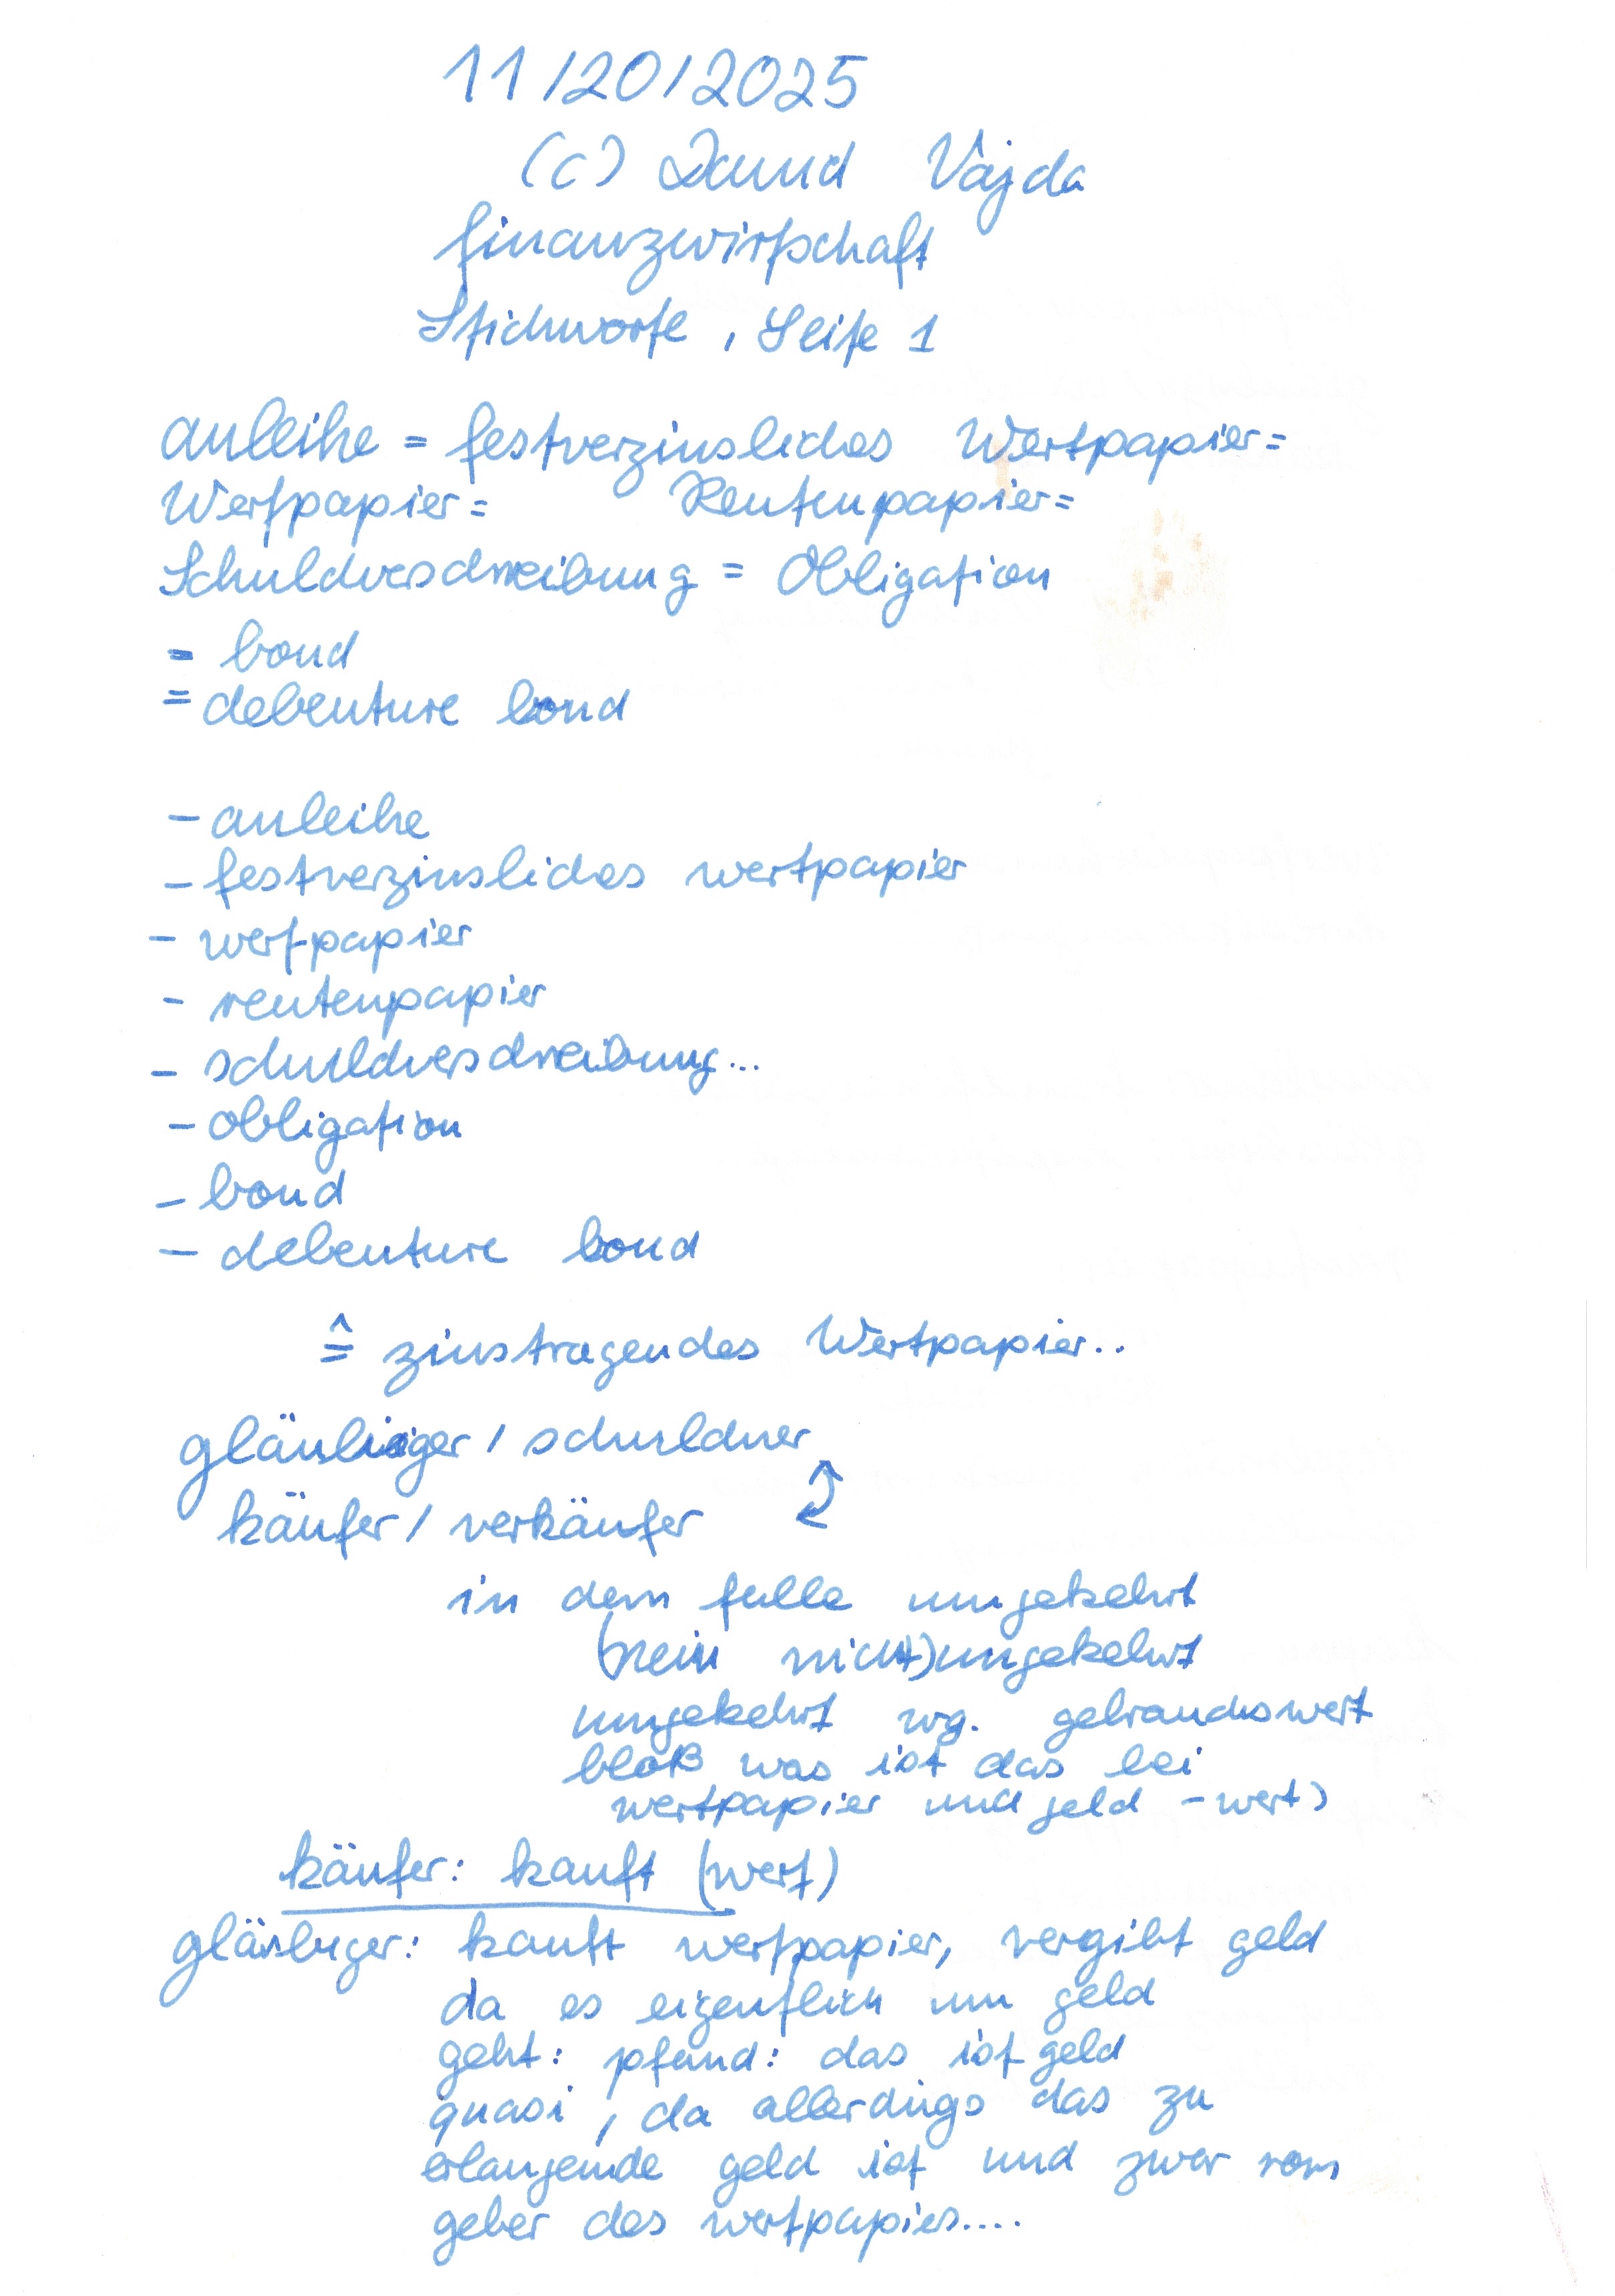 11/20/2025
(c) David Vajda
finanzwirtschaft
Stichworte, Seite 1
anleihe = festverzinsliches Wertpapier=
Wertpapier= Rentenpapier=
Schuldverschreibung = Obligation
= bond
= debenture bond
- anleihe
- festverzinsliches wertpapier
- wertpapier
- rentenpapier
- schuldverschreibung...
- obligation
- bond
- debenture bond
≙ zinstragendes Wertpapier..
gläubiger / schuldner
käufer / verkäufer
in dem falle umgekehrt
(nein nicht) umgekehrt
umgekehrt wg. gebrauchswert
bloß was ist das bei
wertpapier und geld - wert)
käufer: kauft (wert)
gläubiger: kauft wertpapier, vergibt geld
da es eigentlich um geld
geht: pfand: das ist geld
quasi, da allerdings das zu
erlangende geld ist und zwar vom
geber des wertpapies....